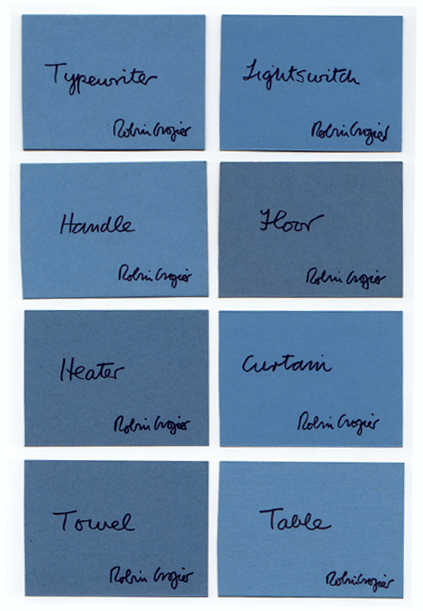 Typewriter
Robin Crozier
Lightswitch
Robin Crozier
Handle
Robin Crozier
Floor
Robin Crozier
Heater
Robin Crozier
Curtain
Robin Crozier
Towel
Robin Crozier
Table
Robin Crozier